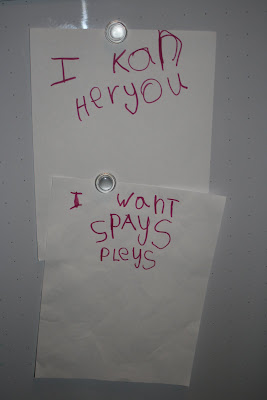 I KaN
HeryOU
I wanT
SPAYS
PLEYS